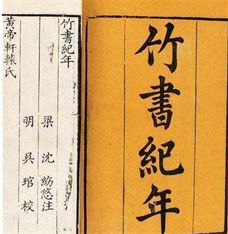 竹書紀年
竹書紀年
梁 沈約 注
明 吳琯校
黃帝軒轅氏